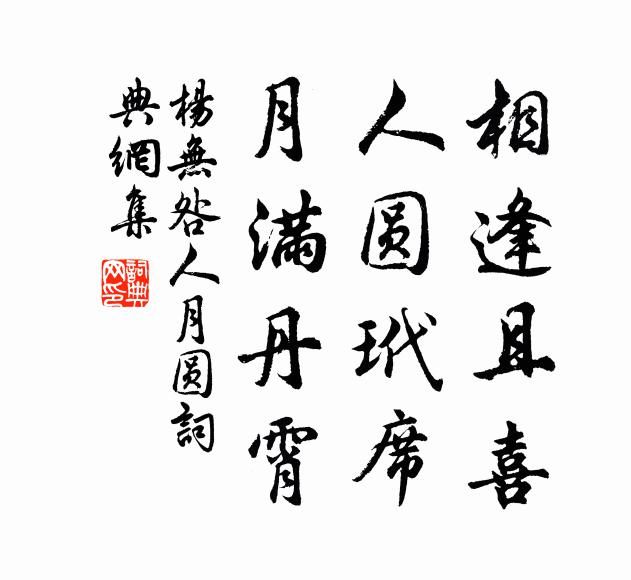 相逢且喜
人圆玳席
月满丹霄
楊無咎人月圆詞
典網集
詞典网印